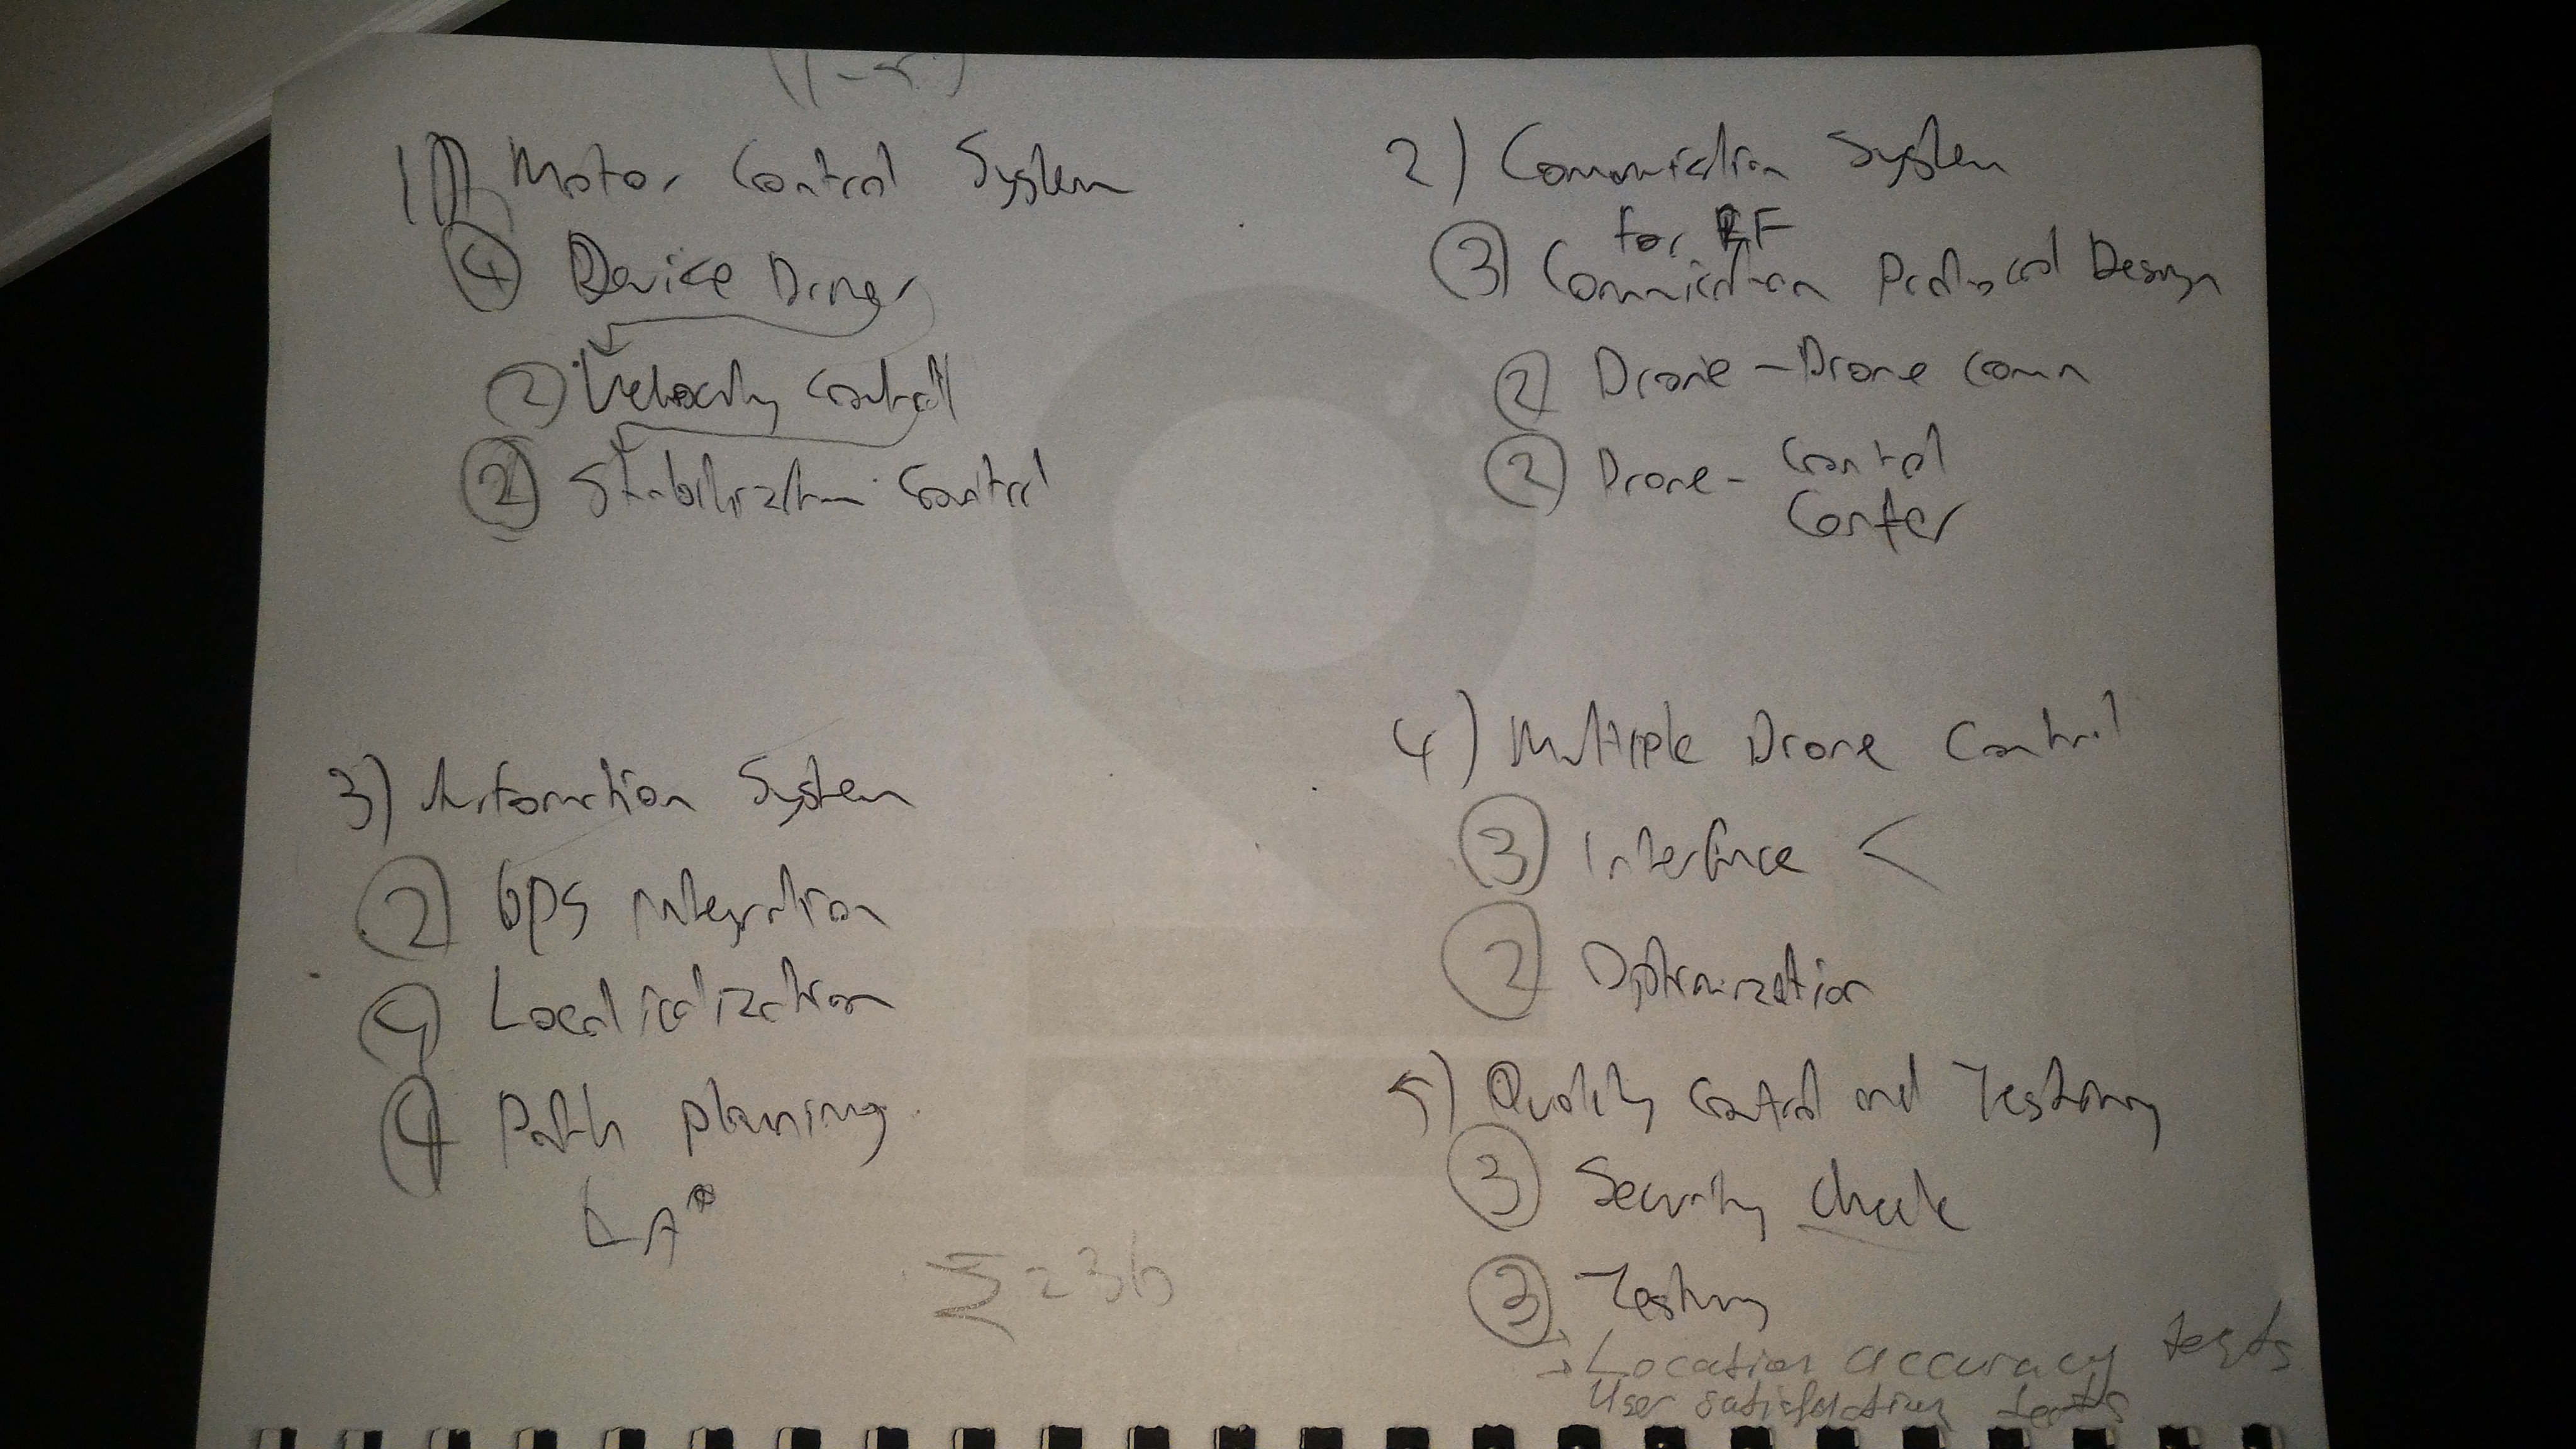 1) Motor Control System
4 Device Driver
2 Velocity Control
2 Stabilization Control
2) Communiction System
for RF
3 Communiction Protocol Design
2 Drone - Drone comm
2 Drone - Control
Center
3) Automation System
2 GPS integration
Localization
4 Path planing
A*
4) Multiple Drone Control
3 Interface <
2 Optimization
5) Quality Control and Testing
3 Security Check
3 Testing
→ Location accuracy tests
User satisfaction tests
Σ = 36